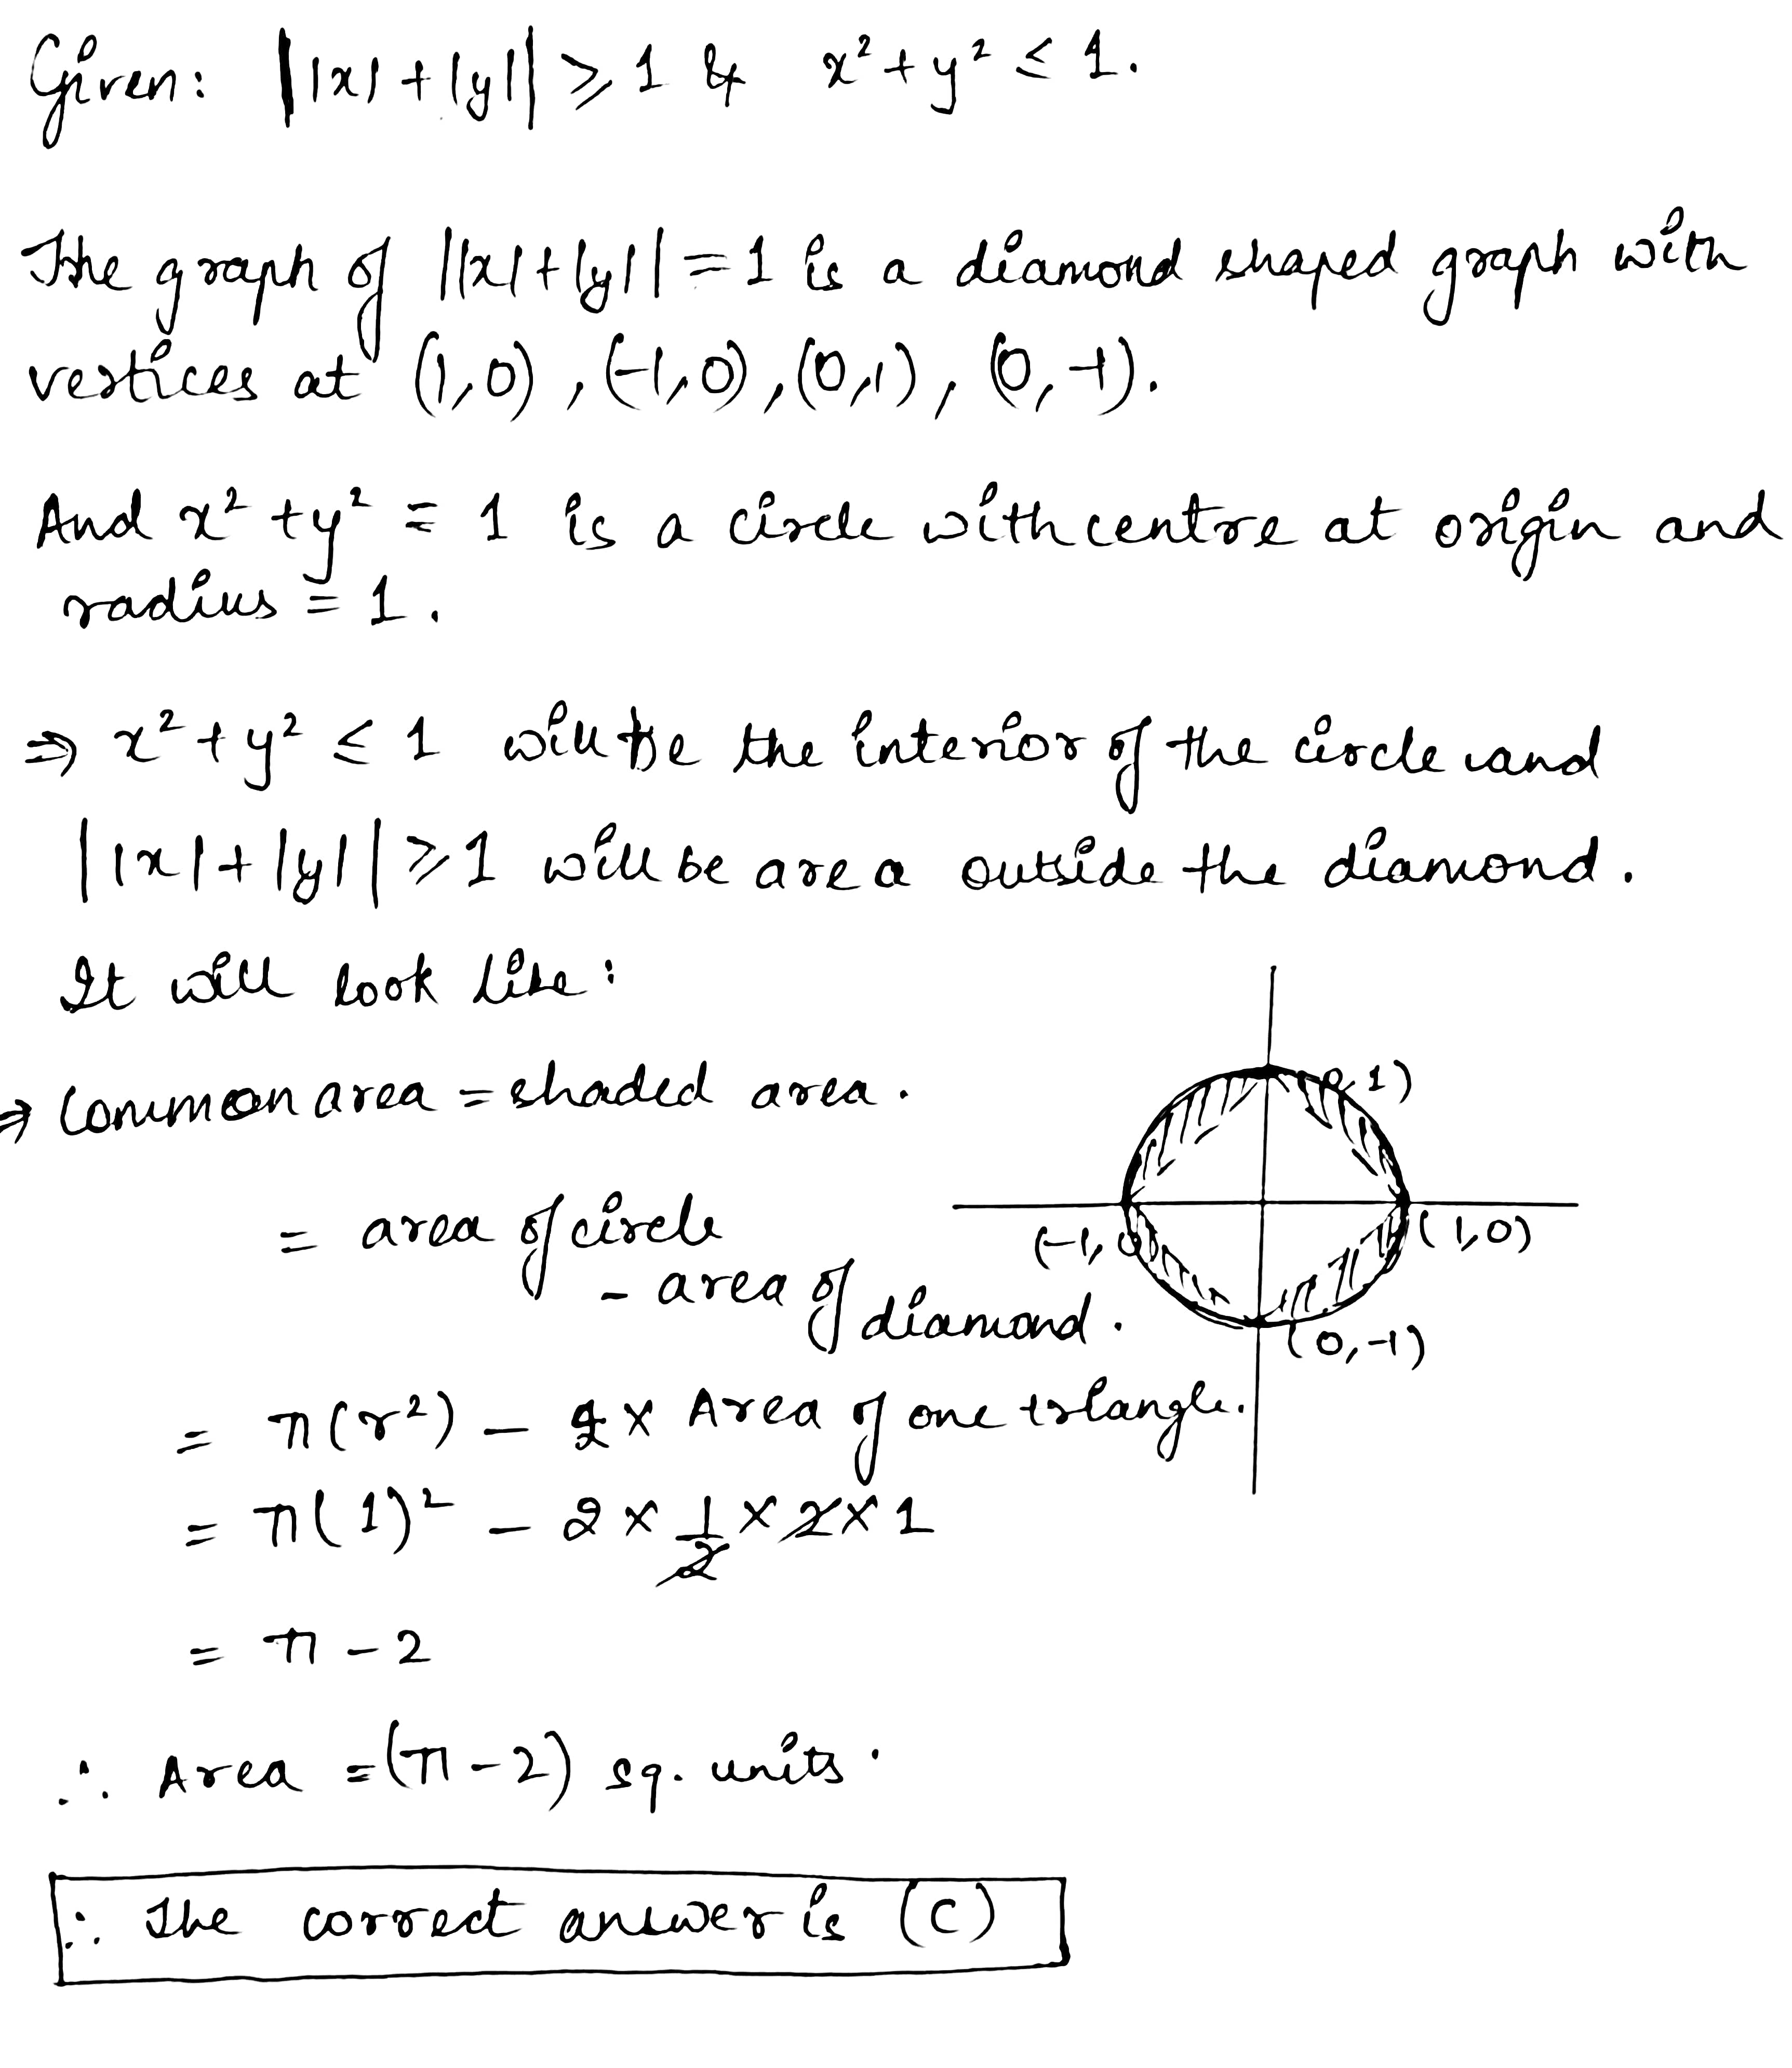 Given: ||x|+|y|| ⩾ 1 & x² + y² ≤ 1.
The graph of ||x|+|y|| = 1 is a diamond shaped graph with
vertices at (1,0), (-1,0), (0,1), (0,-1).
And x² + y² = 1 is a circle with centre at origin and
radius = 1.
⇒ x² + y² ≤ 1 will be the interior of the circle and
||x|+|y|| ⩾ 1 will be area outside the diamond.
It will look like:
⇒ Common area = shaded area.
= area of circle
- area of diamond.
(0,1)
(-1,0)
(1,0)
(0,-1)
= π(r²) - 2 × Area of one triangle.
= π(1)² - 2 × 1/2 × 2 × 1
= π - 2
∴ Area = (π - 2) sq. units.
∴ The correct answer is (C)